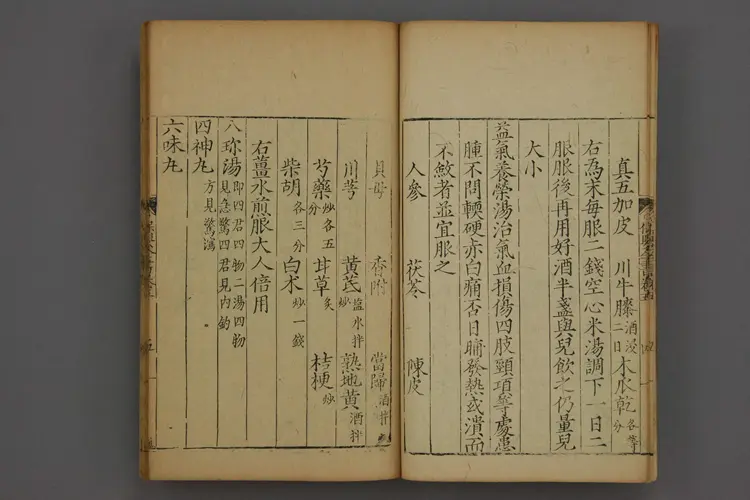 真五加皮 川牛膝酒浸二日 木瓜乾各等分
右為末每服二錢空心米湯調下一日二
服服後再用好酒半盞與兒飲之仍量兒
大小
益氣養榮湯治氣血損傷四肢頸項等處患
腫不問輭硬赤白痛否日晡發熱或潰而
不斂者並宜服之
人參 茯苓 陳皮
貝母 香附 當歸酒拌
川芎 黃芪鹽水拌炒 熟地黃酒拌
芍藥炒各五分 甘草炙 桔梗炒
柴胡各三分 白朮炒一錢
右薑水煎服大人倍用
八珍湯即四君四物二湯四物見急驚四君見內釣
四神丸方見驚瀉
六味丸